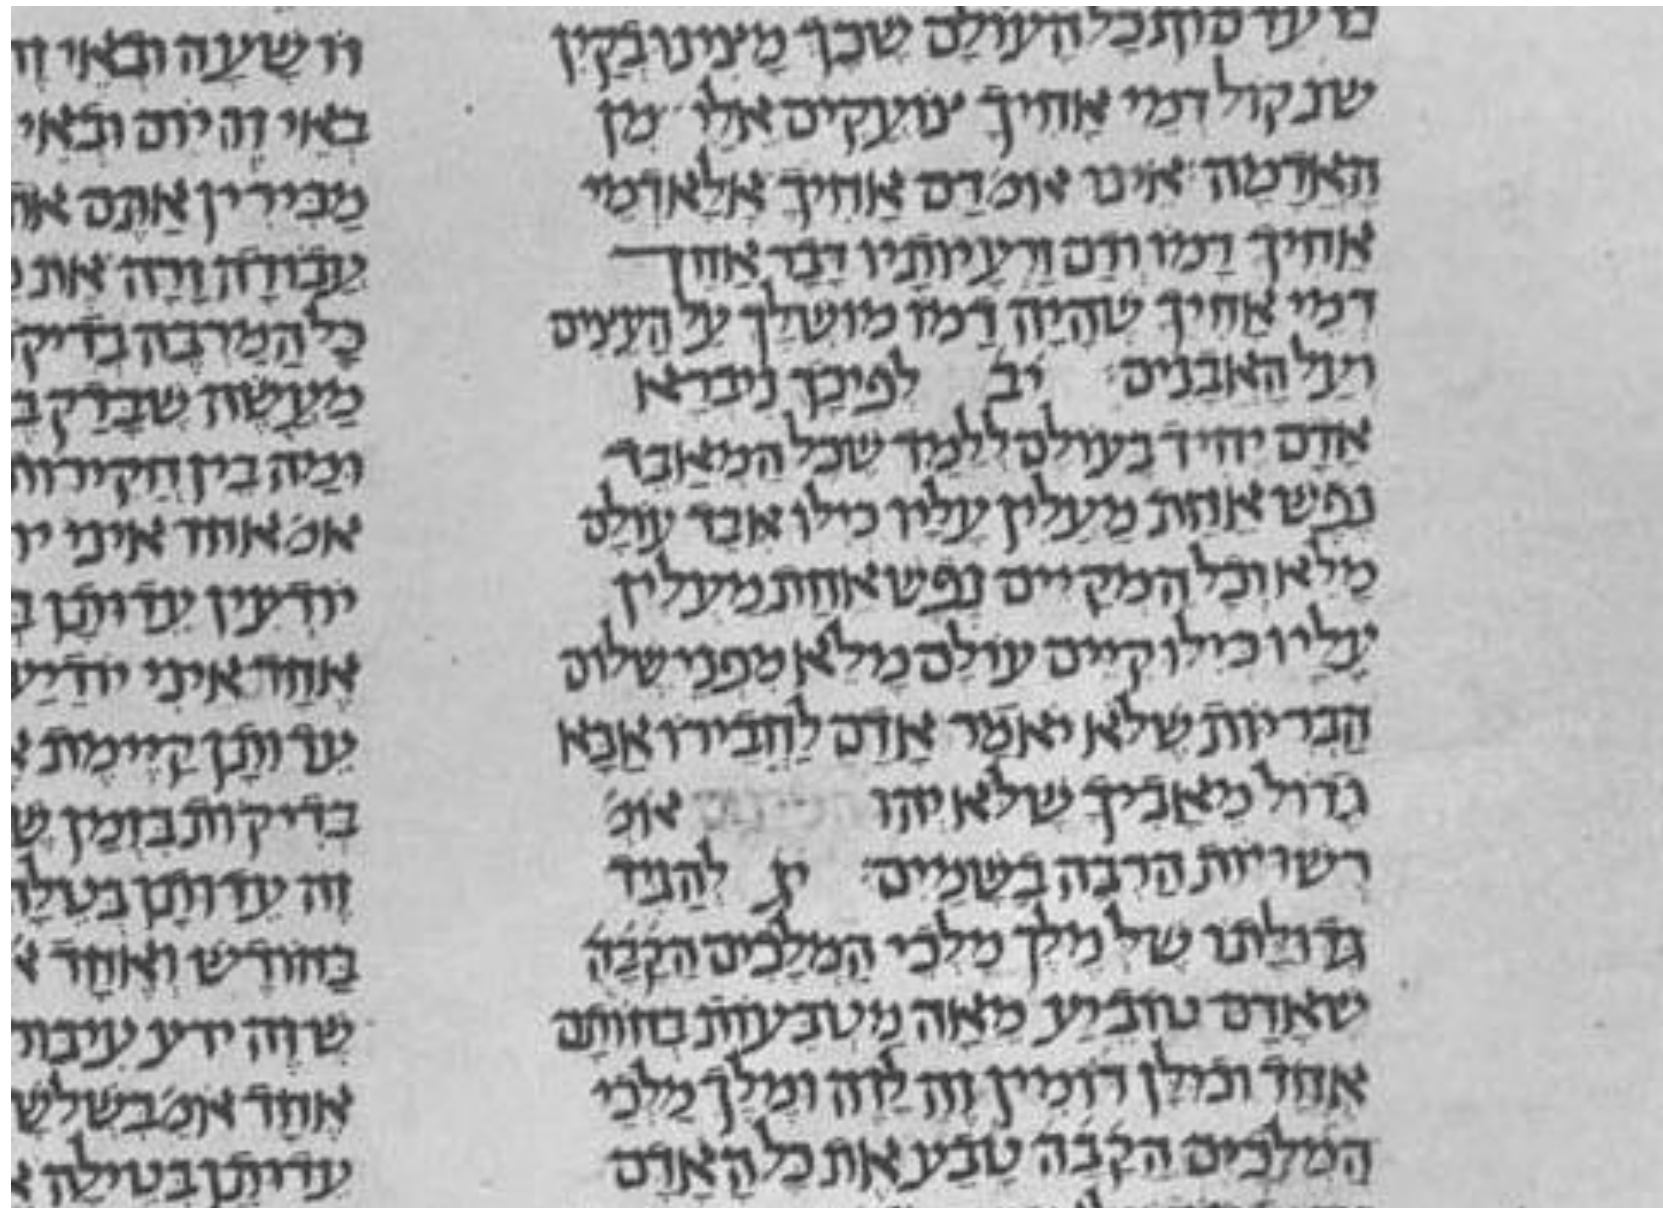 בו עד סוף כל העולם שכך מצינו בקין
שנ קול דמי אחיך צועקים אלי מן
האדמה אינו אומ דם אחיך אלא דמי
אחיך דמו ודם זרעיותיו דבר אחר
דמי אחיך שהיה דמו מושלך על העצים
ועל האבנים יב לפיכך ניברא
אדם יחידי בעולם ללמד שכל המאבד
נפש אחת מעלין עליו כילו אבד עולם
מלא וכל המקיים נפש אחת מעלין
עליו כילו קיים עולם מלא מפני שלום
הבריות שלא יאמר אדם לחבירו אבא
גדול מאביך שלא יהו המינים אומ
רשויות הרבה בשמים יג להגיד
גדולתו של מלך מלכי המלכים הקבה
שאדם טובע מאה מטבעות בחותם
אחד וכולן דומין זה לזה ומלך מלכי
המלכים הקבה טבע את כל האדם
זו שעה ובאי זה
באי זה יום ובאי
מכירין אתם
עבודה זרה את
כל המרבה בדיק
מעשה שבדק ב
ומה בין חקירות
אמ אחד איני יו
יודעין עדותן ב
אחד איני יודיע
עדותן קיימת א
בדיקות בזמן ש
זה עדותן בטלה
בחודש ואחד א
שזה ידע עיבור
אחד אומ בשלש
עדותן בטילה א